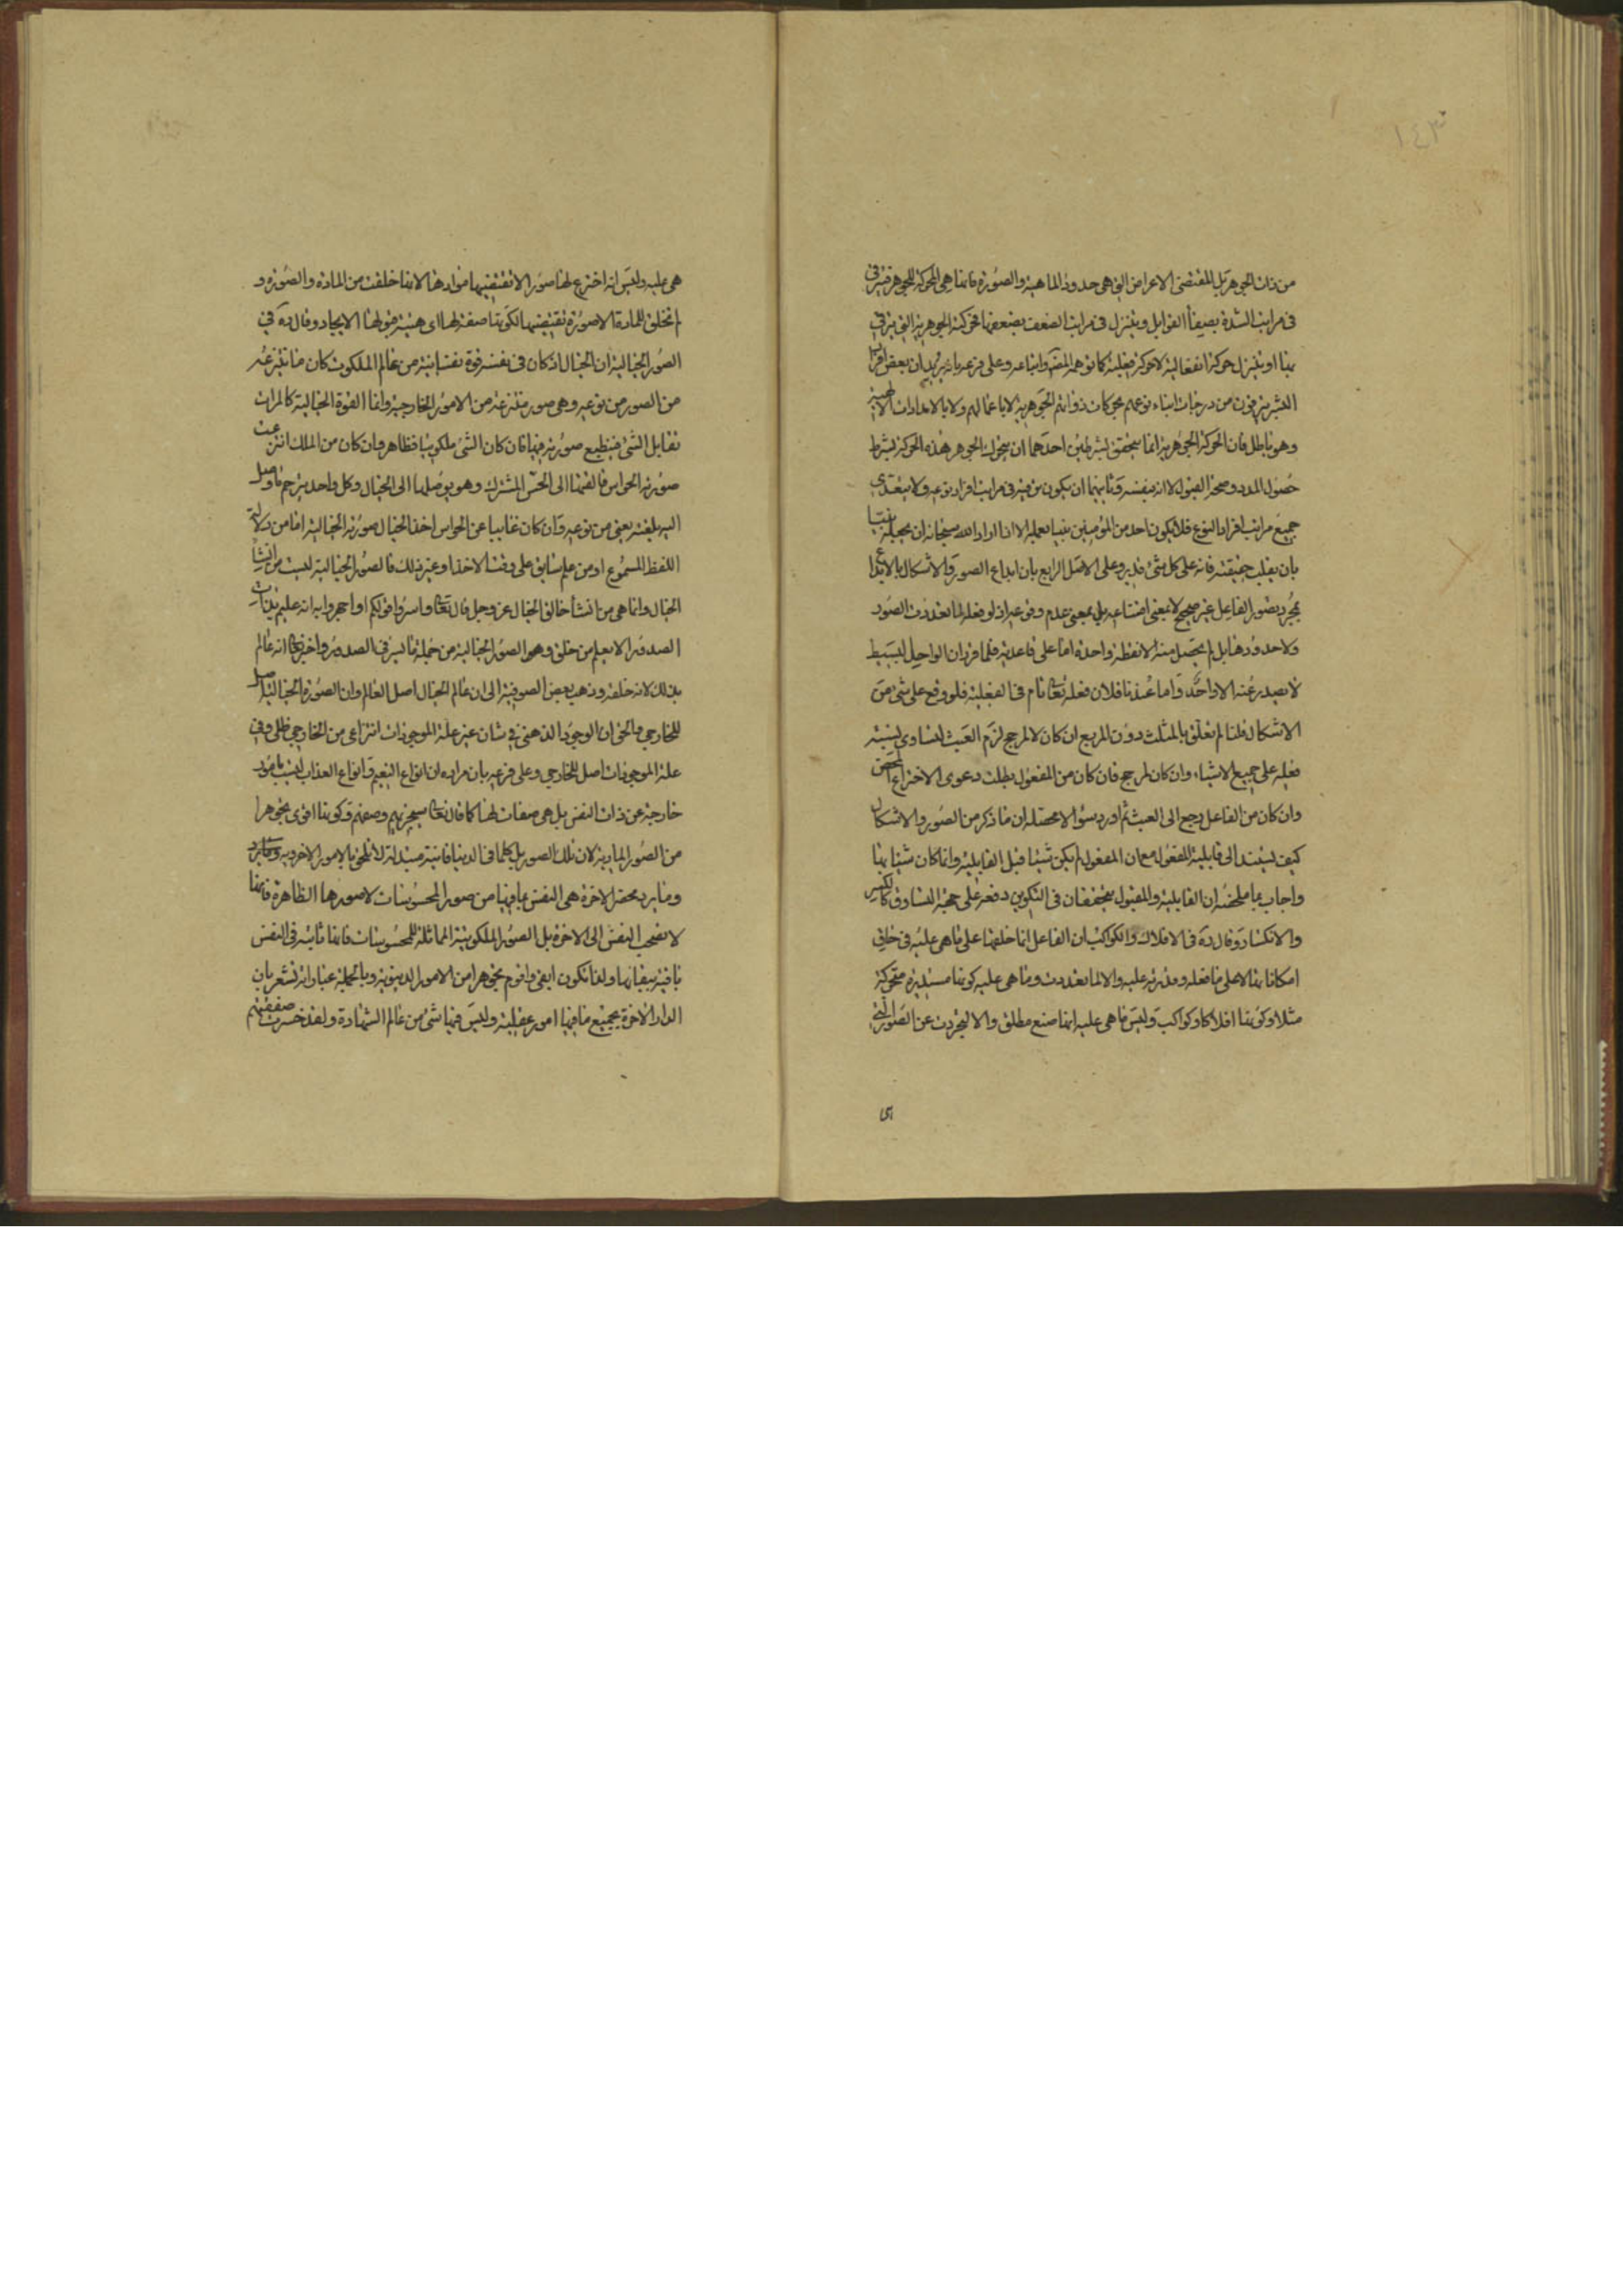 ١٤٣
من ذات الجوهر بل المقتضى الاعراض التى هى حدود الماهية والصورة فانها هى المحركة للجوهر فيترقى
فى مراتب الشدة بصفاء القوابل ويتنزل فى مراتب الضعف بضعفها فحركته الجوهرية التى يترقى
بها او يتنزل حركة انفعالية لا حركة فعلية كما توهمه المصنف واتباعه وعلى فرعه بانه يريد ان بعض افراد
البشر يترقون من درجات ابناء نوعهم بحركات ذواتهم الجوهرية لا باعمالهم ولا بالامدادات الالهية
وهو باطل فان الحركة الجوهرية انما يتحقق بشرطين احدهما ان يتحرك الجوهر هذه الحركة بشرط
حصول المدد وصحة القبول لا انه بنفسه وثانيهما ان يكون ترقيه فى مراتب افراد نوعه ولا يتعدى
جميع مراتب افراد النوع فلا يكون احد من المؤمنين نبيا بعمله الا اذا اراد الله سبحانه ان يجعله نبيا
بان يقلب حقيقته فانه على كل شئ قدير وعلى الاصل الرابع بان ابداع الصور والاشكال بالابداع
بمجرد تصور الفاعل غير صحيح لا بمعنى امتناعه بل بمعنى عدم وقوعه اذ لو فعله لما تعددت الصور
ولا حدودها بل لم يحصل منه الا نقطة واحدة اما على قاعدته فلما قرر ان الواحد البسيط
لا يصدر عنه الا واحد واما عندنا فلان فعله تعالى تام فى الفعلية فلو وقع على شئ من
الاشكال قلنا لم تعلق بالمثلث دون المربع ان كان لا لمرجح لزم العبث لتساوى نسبة
فعله على جميع الاشياء وان كان لمرجح فان كان من المفعول بطلت دعوى الاختراع المحض
وان كان من الفاعل رجع الى العبث ثم اورد سؤالا محصله ان ما ذكر من الصور والاشكال
كيف يستند الى قابلية المفعول مع ان المفعول لم يكن شيئا قبل القابلية وانما كان شيئا بها
واجاب بما ملخصه ان القابلية والمقبول يتحققان فى التكوين دفعة على جهة التساوق كالكسر
والانكسار وقال ده فى الافلاك والكواكب ان الفاعل انما خلقها على ما هى عليه فى خلق
امكاناتها لا على ما فعله وقدرته عليه والا لما تعددت وما هى عليه كونها مستديرة متحركة
مثلا وكونها افلاكا وكواكب وليس ما هى عليه انها صنع مطلق والا لتجردت عن الصور التى
هى عليه وليس انه اخترع لها صورا لا تقتضيها موادها لانها خلقت من المادة والصورة و
لم تخلق للمادة الا صورة تقتضيها لكونها صفة لها اى هيئة قبولها الايجاد وقال ده فى
الصور الخيالية ان الخيال اذ كان فى نفسه قوة نفسانية من عالم الملكوت كان ما تنتزعه
من الصور من نوعه وهى صور منتزعة من الامور الخارجية وانما القوة الخيالية كالمرآت
تقابل الشئ فينطبع صورته فيها فان كان الشئ ملكوتيا فظاهر وان كان من الملك انتزعت
صورته الحواس فالقتها الى الحس المشترك وهو يوصلها الى الخيال وكل واحد يترجم ما وصل
اليه بلغته يعنى من نوعه وان كان غائبا عن الحواس اخذ الخيال صورته الخيالية اما من دلالة
اللفظ المسموع او من علم سابق على وقت الاخذ او غير ذلك فالصور الخيالية ليست من انشاء
الخيال وانما هى من انشاء خالق الخيال عز وجل قال تعالى واسروا قولكم او اجهروا به انه عليم بذات
الصدور الا يعلم من خلق وهو الصور الخيالية من جملة ما اسر فى الصدور واخبر تعالى انه عالم
بذلك لانه خلقه وذهب بعض الصوفية الى ان عالم الخيال اصل العالم وان الصورة الخيالية اصل
للخارجى والحق ان الوجود الذهنى فى شان غير علة الموجودات انتزاعى من الخارجى ظلى وفى
علة الموجودات اصل للخارجى وعلى فرعه بان مراده ان انواع النعيم وانواع العذاب ليست بامور
خارجة عن ذات النفس بل هى صفات لها كما قال تعالى سيجزيهم وصفهم وكونها اقوى تجوهرا
من الصور المادية لان تلك الصور بل كلما فى الدنيا فانية متبدلة لا تلحق بالامور الاخروية وما يرد
وما يرد محضر الاخرة هى النفس بما فيها من صور المحسوسات لا صورها الظاهرة فانها
لا تصحب النفس الى الاخرة بل الصور الملكوتية المماثلة للمحسوسات فانها ثابتة فى النفس
باقية ببقائها ولذا تكون ابقى واقوم تجوهرا من الامور الدنيوية وبالجملة عباراته تشعر بان
الدار الاخرة بجميع ما فيها امور عقلية وليس فيها شئ من عالم الشهادة ولقد خسرت صفقتهم